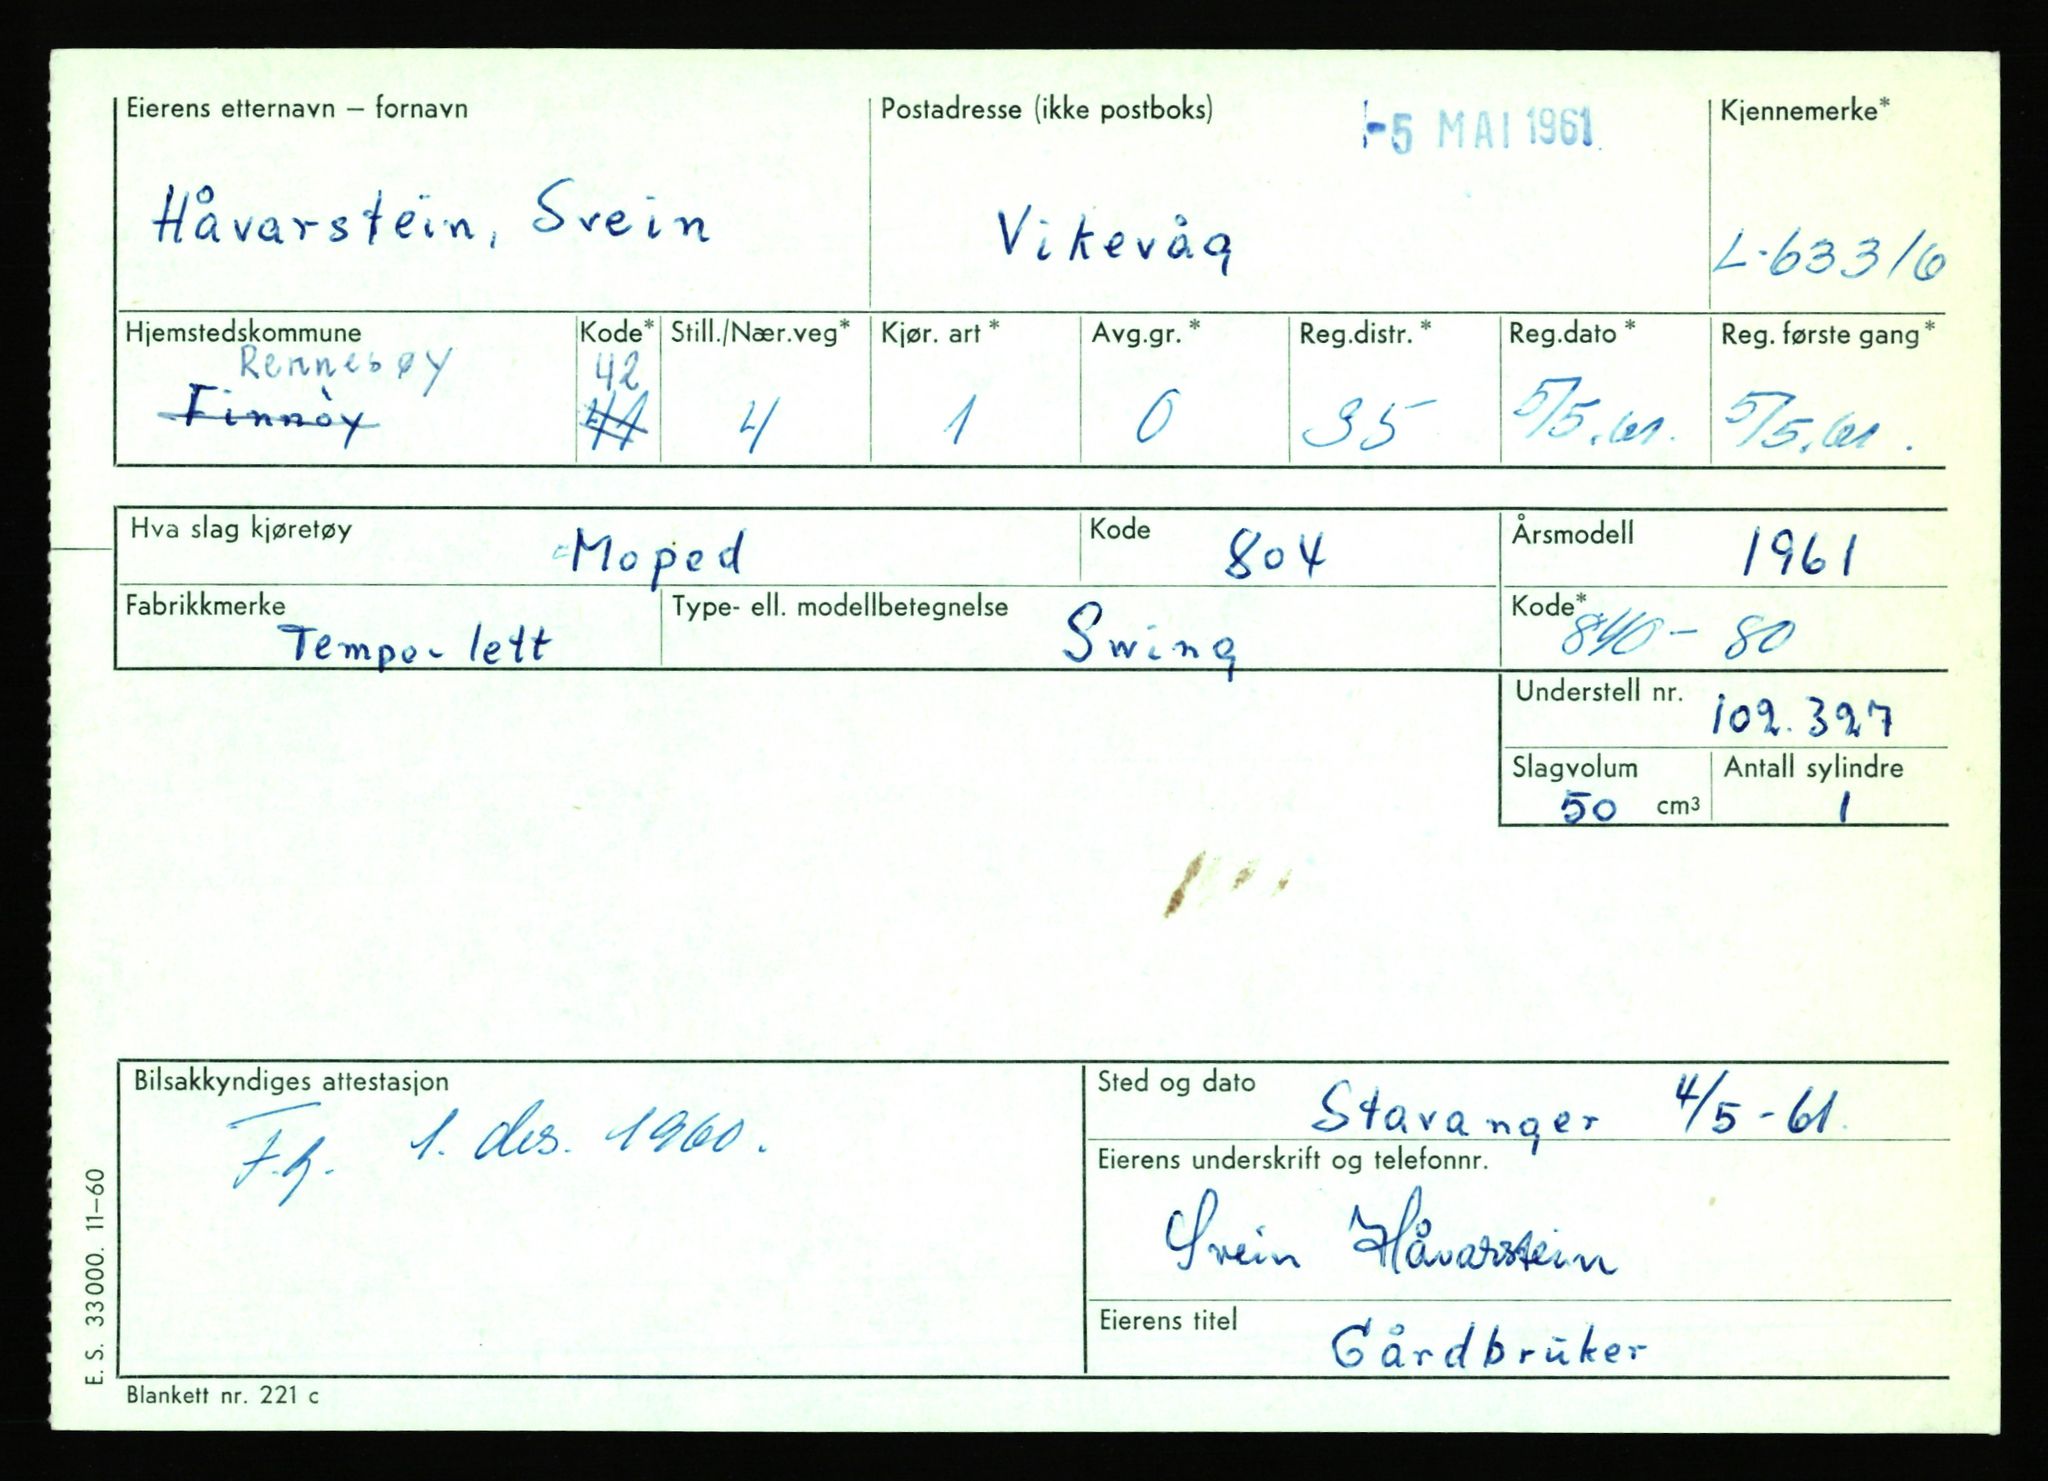 Eierens etternavn – fornavn
Postadresse (ikke postboks)
-5 MAI 1961
Kjennemerke*
Håvarstein, Svein
Vikevåg
L-63316
Hjemstedskommune Kode* Still./Nær.veg* Kjør. art* Avg.gr.* Reg.distr.* Reg.dato* Reg. første gang*
Rennesøy 42
Finnøy 41 4 1 0 35 5/5.61. 5/5.61.
Hva slag kjøretøy Moped
Kode 804
Årsmodell 1961
Fabrikkmerke Tempo-lett
Type- ell. modellbetegnelse Swing
Kode* 840 – 80
Understell nr. 102.327
Slagvolum 50 cm³
Antall sylindre 1
Bilsakkyndiges attestasjon
F.g. 1. des. 1960.
Sted og dato Stavanger 4/5-61.
Eierens underskrift og telefonnr.
Svein Håvarstein
Eierens titel
Gårdbruker
E. S. 33000. 11–60
Blankett nr. 221 c